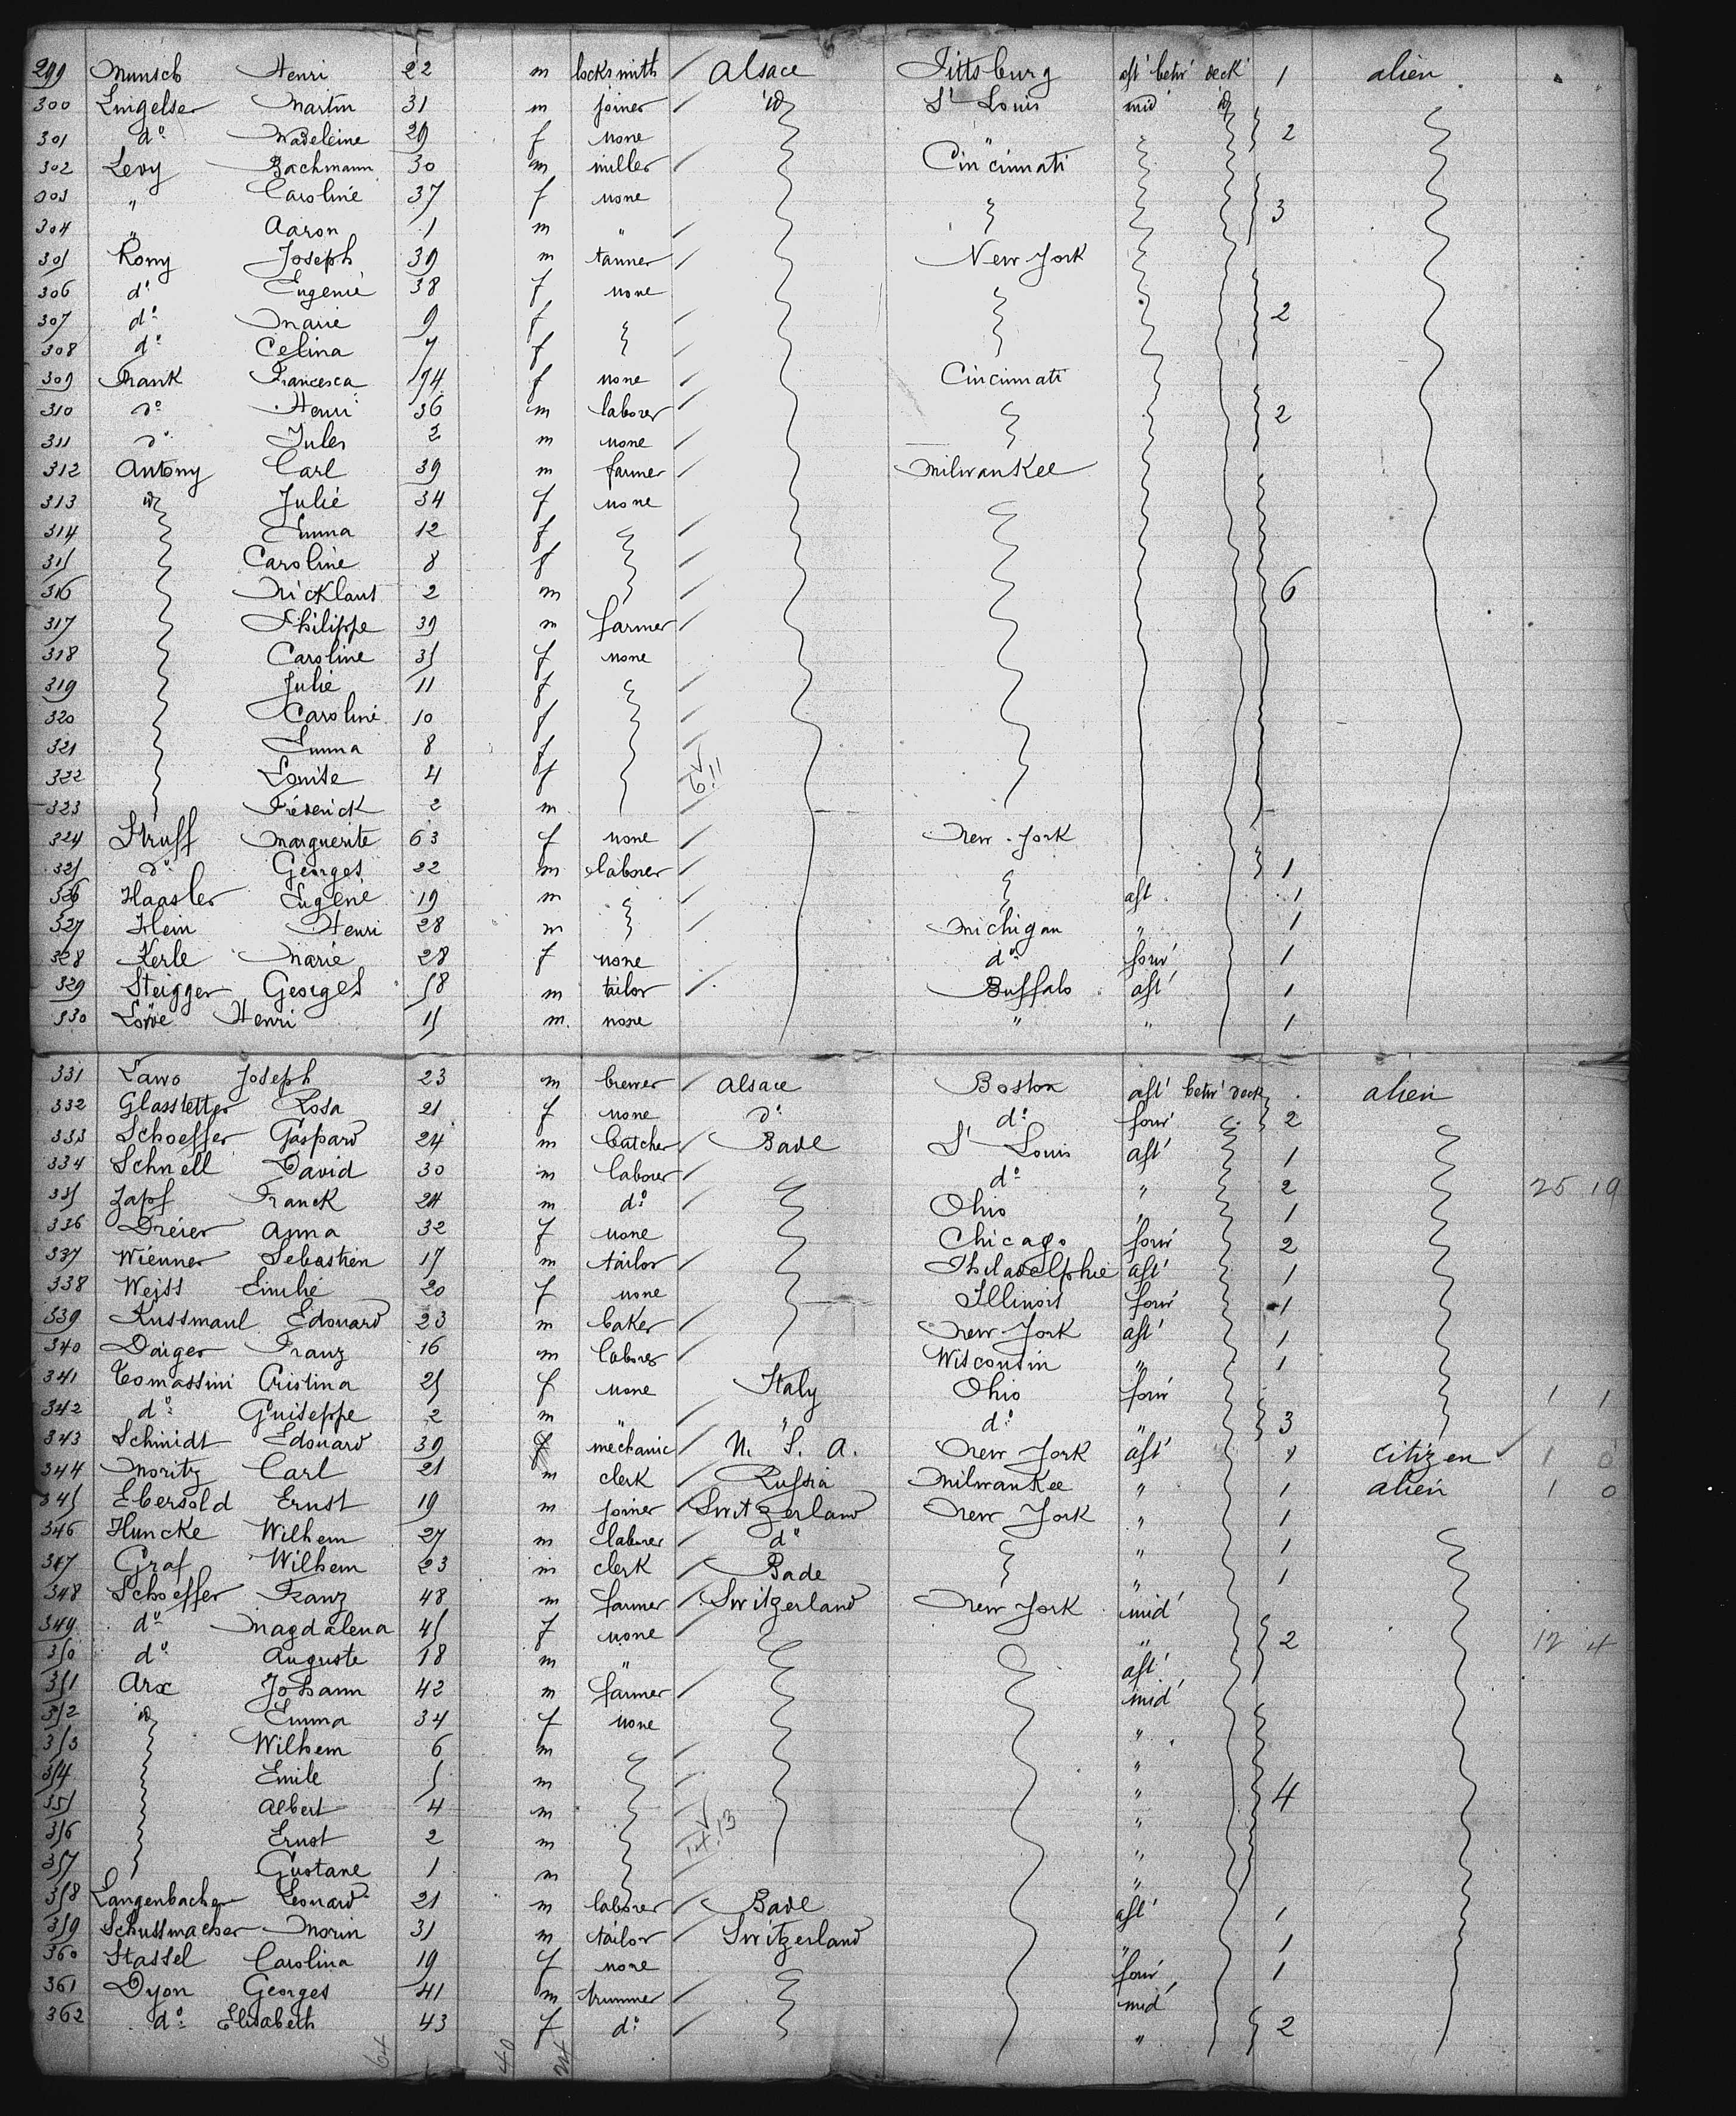 299 Munsch Henri 22 m locksmith / Alsace Pittsburg aft' betw' deck' 1 alien
300 Lingelser Martin 31 m joiner / id St Louis mid' id
301 do Madeleine 29 f none " 2
302 Levy Bachmann 30 m miller / Cincinnati
303 " Caroline 37 f none 3
304 " Aaron 1 m " /
305 Romy Joseph 39 m tanner / New York
306 do Eugenie 38 f none
307 do Marie 9 f / 2
308 do Celina 7 f /
309 Frank Francesca 74 f none / Cincinnati
310 do Henri 36 m laborer / 2
311 do Jules 2 m none /
312 Antony Carl 39 m farmer / Milwaukee
313 id Julie 34 f none
314 Emma 12 f /
315 Caroline 8 f /
316 Nicklaus 2 m / 6
317 Philippe 39 m farmer /
318 Caroline 35 f none
319 Julie 11 f /
320 Caroline 10 f /
321 Emma 8 f /
322 Louise 4 f 6.11
323 Frederick 2 m /
324 Struff Marguerite 63 f none / New York
325 do Georges 22 m laborer / 1
326 Haasler Eugene 19 m / aft 1
327 Hein Henri 28 m / Michigan " 1
328 Kerle Marie 28 f none do forw' 1
329 Steigger Georges 58 m tailor / Buffalo aft' 1
330 Löwe Henri 15 m. none " " 1
331 Lawo Joseph 23 m brewer / Alsace Boston aft' betw' deck alien
332 Glasstetter Rosa 21 f none do do forw' 2
333 Schoeffer Gaspard 24 m butcher / Bade St Louis aft' 1
334 Schnell David 30 m laborer / do " 2 25 19
335 Zapf Franck 24 m do / Ohio " 1
336 Dreier Anna 32 f none Chicago forw' 2
337 Wienner Sebastien 17 m tailor / Philadelphie aft' 1
338 Weiss Emilie 20 f none Illinois forw' 1
339 Kussmaul Edouard 23 m baker / New York aft' 1
340 Daiger Franz 16 m laborer / Wisconsin " 1
341 Tomassini Cristina 25 f none Italy Ohio forw' 1 1
342 do Guiseppe 2 m " / " do " 3
343 Schmidt Edouard 39 mechanic / U. S. A. New York aft' 1 citizen 1 0
344 Moritz Carl 21 m clerk / Russia Milwaukee " 1 alien 1 0
345 Ebersold Ernst 19 m joiner / Switzerland New York " 1
346 Huncke Wilhem 27 m laborer / do " 1
347 Graf Wilhem 23 m clerk / Bade " 1
348 Schoeffer Franz 48 m farmer / Switzerland New York mid'
349 do Magdalena 45 f none " 2 12 4
350 do Auguste 18 m " aft'
351 Arx Johann 42 m farmer / mid'
352 id Emma 34 f none "
353 Wilhem 6 m / "
354 Emile 5 m / " 4
355 Albert 4 m / "
356 Ernst 2 m 14.13 "
357 Gustane 1 m / "
358 Langenbacher Leonard 21 m laborer / Bade aft' 1
359 Schussmacher Morin 31 m tailor / Switzerland " 1
360 Stassel Carolina 19 f none forw' 1
361 Dyon Georges 41 m trimmer / mid'
362 do Elisabeth 43 f do / " 2
64 40 24